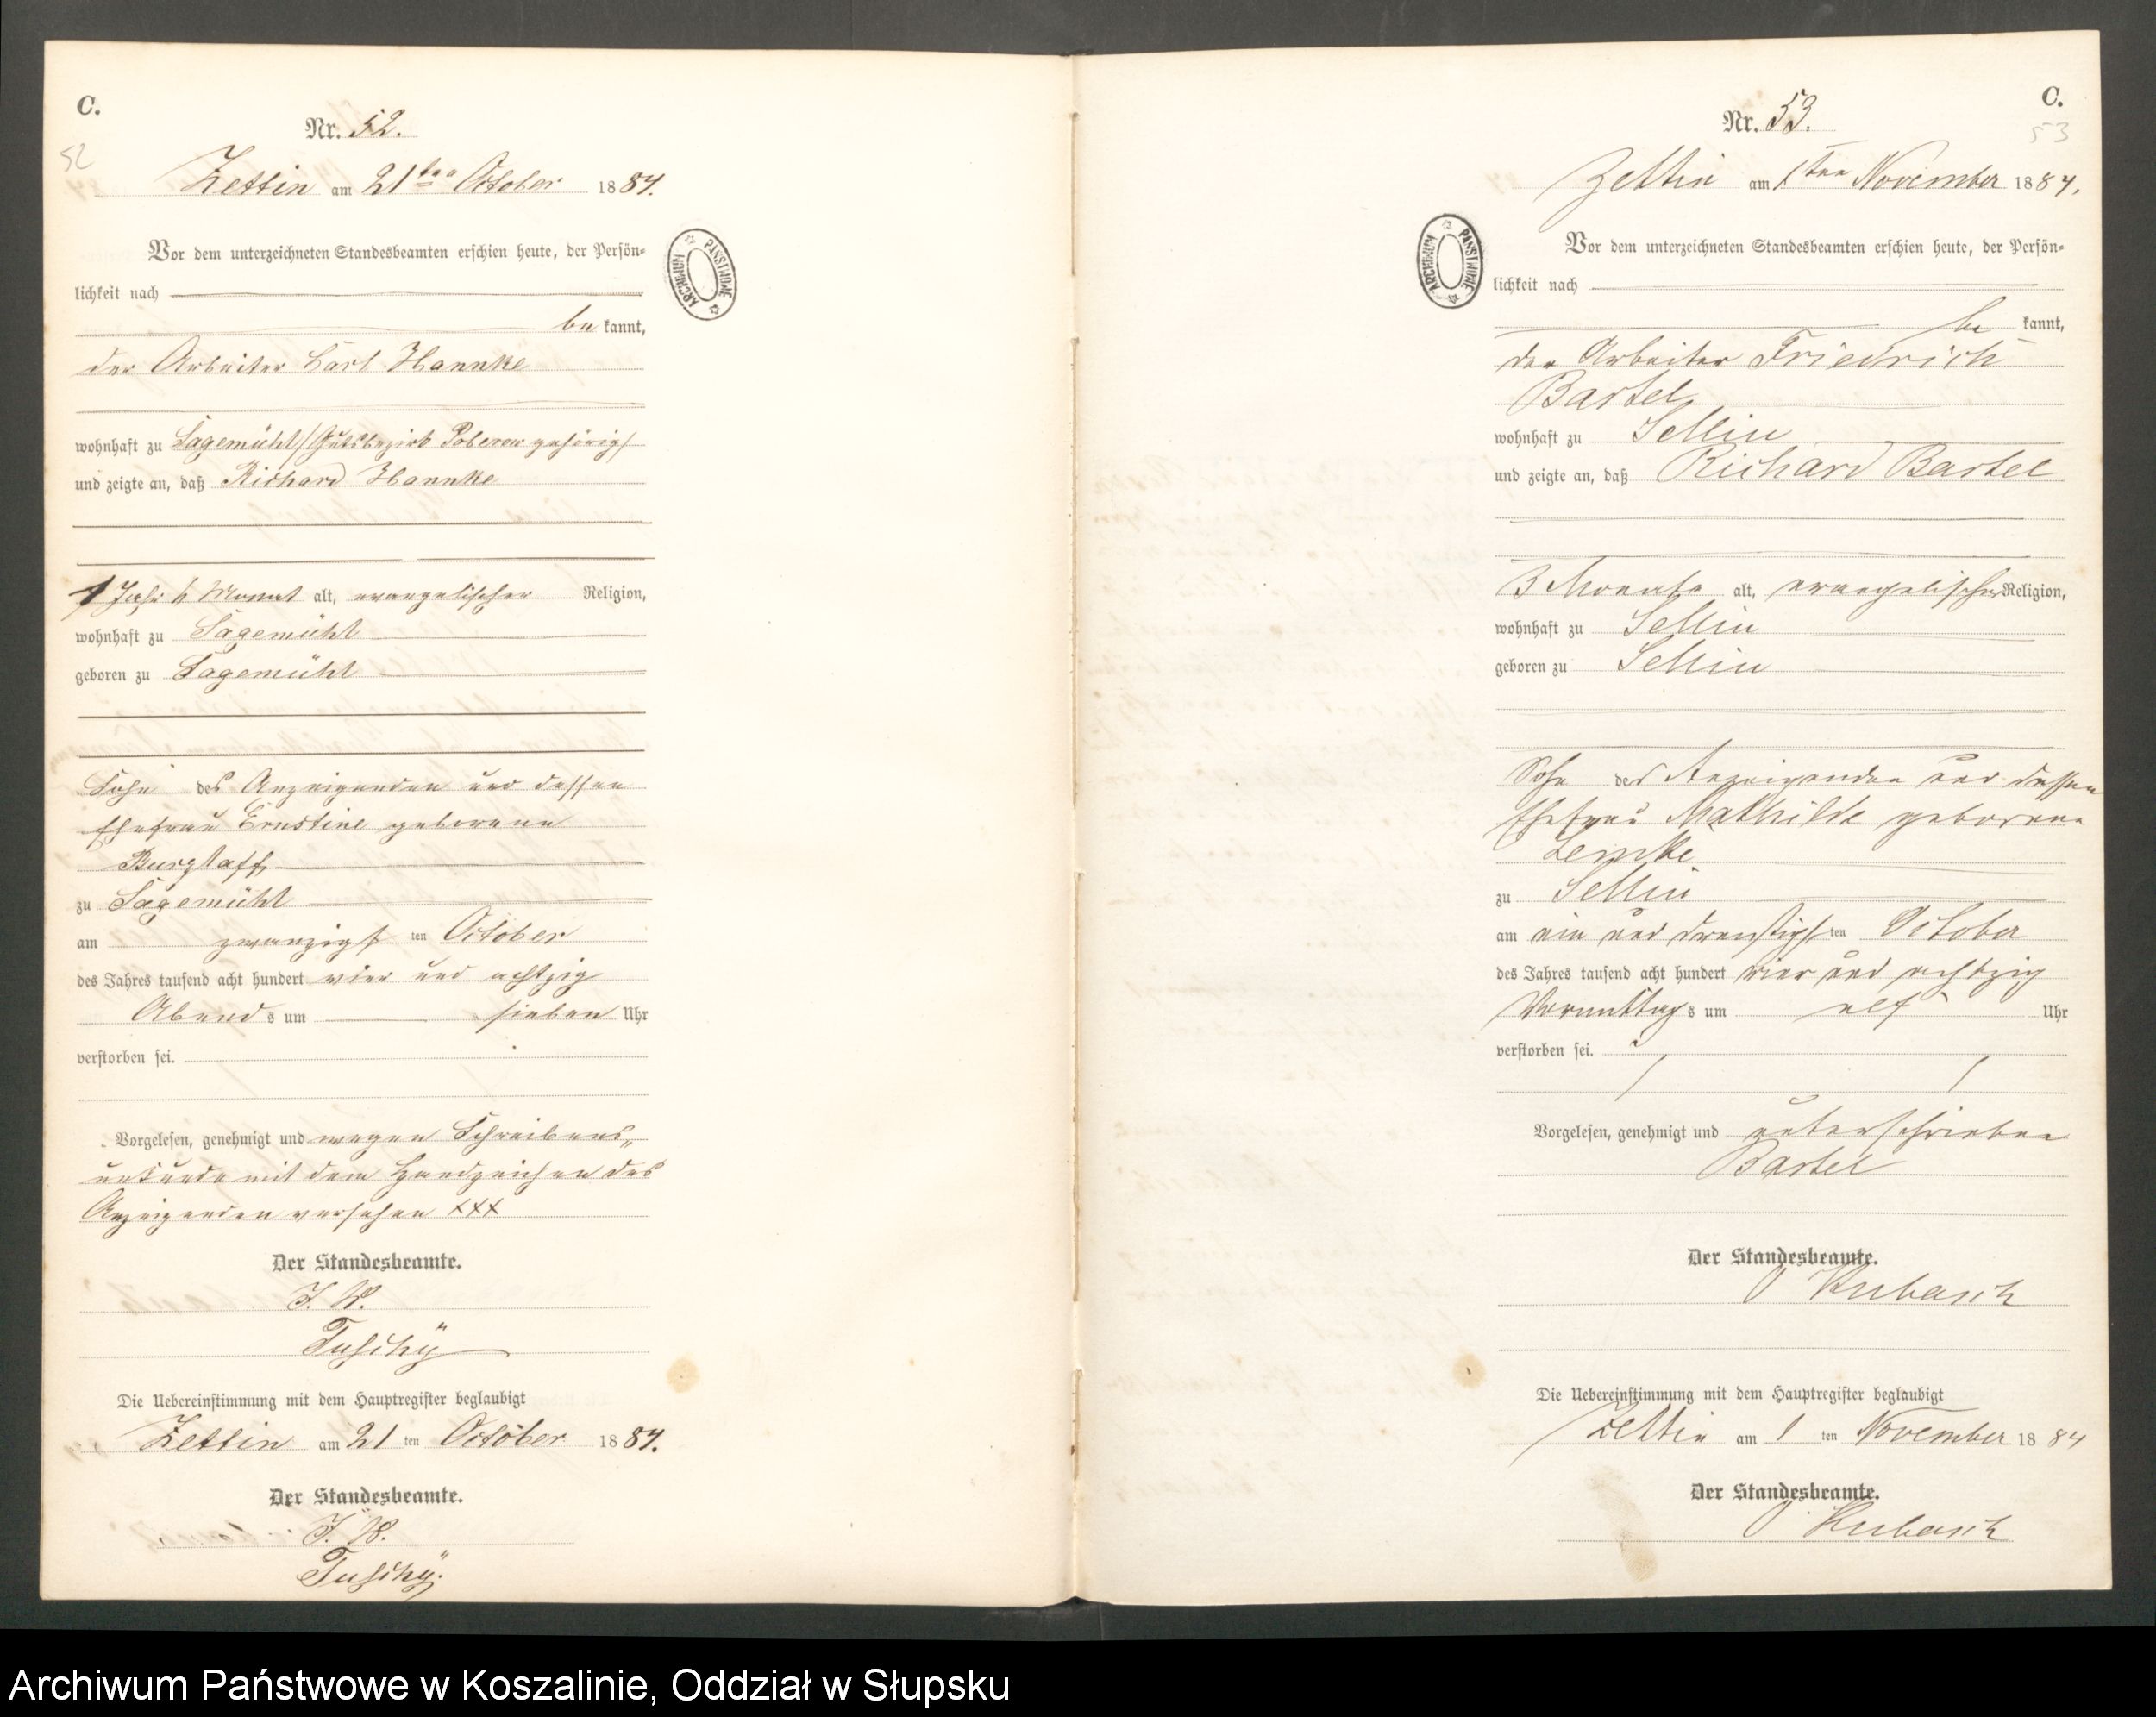 C.
52
Nr. 52.
Zettin am 21ten October 1884.
Vor dem unterzeichneten Standesbeamten erschien heute, der Persön-
lichkeit nach
be kannt,
der Arbeiter Carl Hannke
wohnhaft zu Sagemühl /Gutsbezirk Poberow gehörig/
und zeigte an, daß Richard Hannke
1 Jahr Monat alt, evangelischer Religion,
wohnhaft zu Sagemühl
geboren zu Sagemühl
Sohn des Anzeigenden und dessen
Ehefrau Ernstine geborene
Burglaff
zu Sagemühl
am zwanzigsten October
des Jahres tausend acht hundert vier und achtzig
Abends um sieben Uhr
verstorben sei.
Vorgelesen, genehmigt und wegen Schreibens„
unkunde mit dem Handzeichen des
Anzeigenden versehen XXX
Der Standesbeamte.
J. V.
Tuschÿ
Die Uebereinstimmung mit dem Hauptregister beglaubigt
Zettin am 21ten October 1884.
Der Standesbeamte.
J. V.
Tuschÿ.
ARCHIWUM PAŃSTWOWE
C.
53
Nr. 53.
Zettin am 1ten November 1884.
Vor dem unterzeichneten Standesbeamten erschien heute, der Persön-
lichkeit nach
be kannt,
der Arbeiter Friedrich
Bartel
wohnhaft zu Sellin
und zeigte an, daß Richard Bartel
3 Monate alt, evangelischer Religion,
wohnhaft zu Sellin
geboren zu Sellin
Sohn des Anzeigenden und dessen
Ehefrau Mathilde geborene
Lemke
zu Sellin
am ein und dreißigsten October
des Jahres tausend acht hundert vier und achtzig
Vormittags um elf Uhr
verstorben sei.
Vorgelesen, genehmigt und unterschrieben
Bartel
Der Standesbeamte.
Kubasch
Die Uebereinstimmung mit dem Hauptregister beglaubigt
Zettin am 1ten November 1884
Der Standesbeamte.
Kubasch
ARCHIWUM PAŃSTWOWE
Archiwum Państwowe w Koszalinie, Oddział w Słupsku